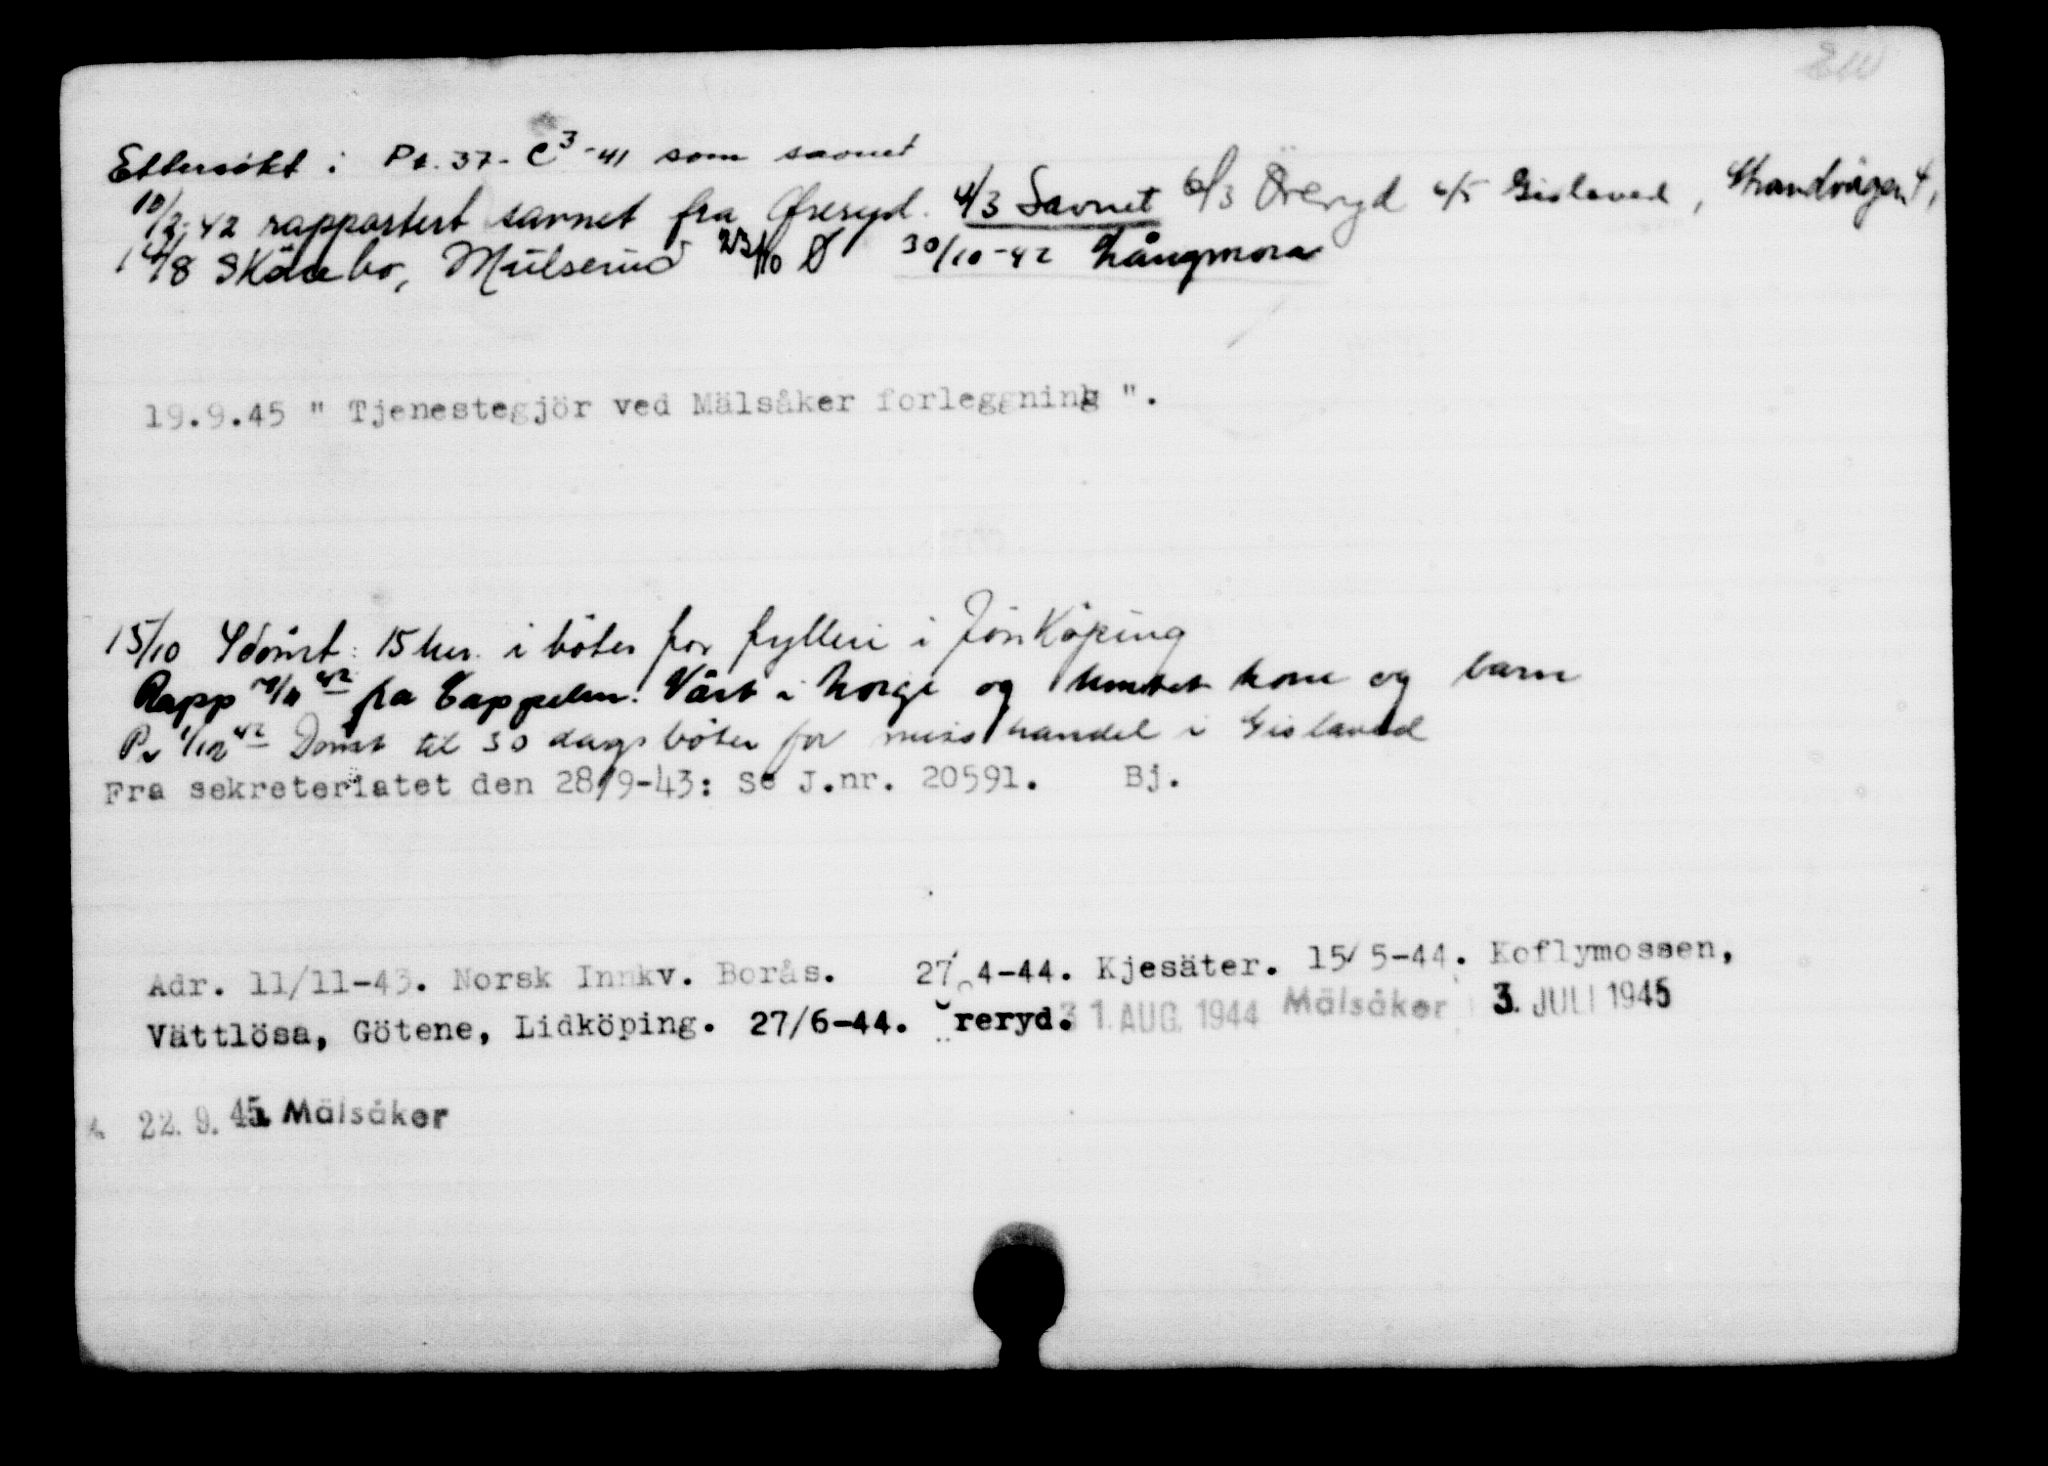 Ettersökt i Pt. 37-C3-41 som savnet
10/2-42 rapportert savnet fra Öreryd. 4/3 Savnet 6/3 Öreryd 4/5 Gislaved, Strandvägen 4,
14/8 Skönbo, Mülserud 23/10 Ø 30/10-42 Långmora
19.9.45 " Tjenestegjör ved Mälsåker forleggning ".
15/10 Idömt: 15 kr. i böter for fylleri i Jönköping
Rapp 10/11 42 fra Cappelen: Vårt i Norge og hentet kone og barn
Pr 1/12 42 Dömt til 30 dags böter for misshandel i Gislaved
Fra sekreteriatet den 28/9-43: Se J.nr. 20591. Bj.
Adr. 11/11-43. Norsk Innkv. Borås. 27/4-44. Kjesäter. 15/5-44. Koflymossen,
Vättlösa, Götene, Lidköping. 27/6-44. Öreryd. 31. AUG. 1944 Mälsåker 3. JULI 1945
22. 9. 45. Mälsåker